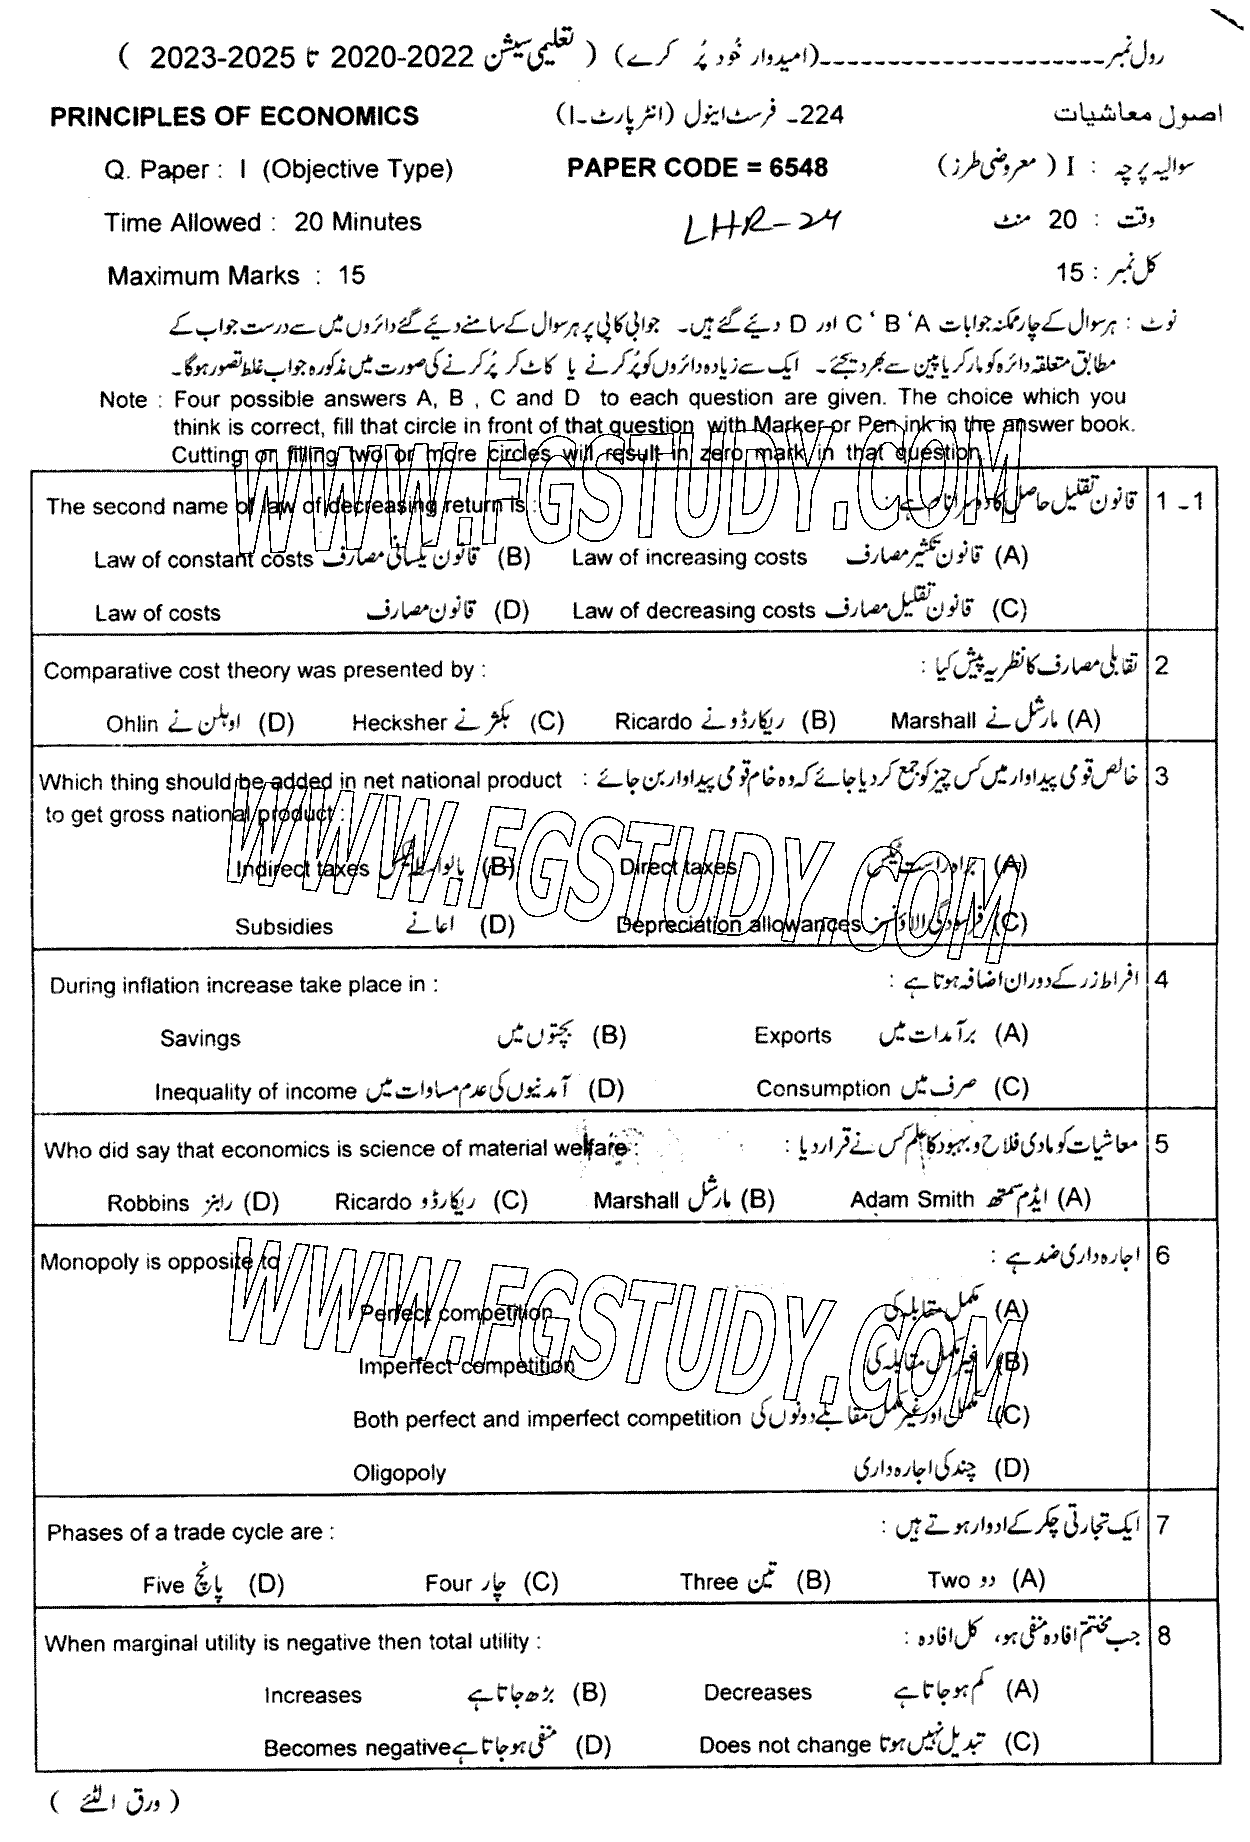 رول نمبر ---------------------(امیدوار خود پُر کرے) ( تعلیمی سیشن 2022-2020 تا 2025-2023 )
PRINCIPLES OF ECONOMICS 224۔ فرسٹ اینول (انٹر پارٹ۔I) اصول معاشیات
Q. Paper : I (Objective Type) PAPER CODE = 6548 سوالیہ پرچہ : I ( معروضی طرز)
Time Allowed : 20 Minutes LHR-24 وقت : 20 منٹ
Maximum Marks : 15 کل نمبر : 15
نوٹ : ہر سوال کے چار ممکنہ جوابات A ، B ، C اور D دیئے گئے ہیں۔ جوابی کاپی پر ہر سوال کے سامنے دیئے گئے دائروں میں سے درست جواب کے
مطابق متعلقہ دائرہ کو مارکر یا پین سے بھر دیجئے۔ ایک سے زیادہ دائروں کو پُر کرنے یا کاٹ کر پُر کرنے کی صورت میں مذکورہ جواب غلط تصور ہوگا۔
Note : Four possible answers A, B , C and D to each question are given. The choice which you
think is correct, fill that circle in front of that question with Marker or Pen ink in the answer book.
Cutting or filling two or more circles will result in zero mark in that question.
WWW.FGSTUDY.COM
The second name of law of decreasing return is : قانون تقلیل حاصل کا دوسرا نام ہے : 1 ۔ 1
Law of constant costs قانون یکسانی مصارف (B) Law of increasing costs قانون تکثیر مصارف (A)
Law of costs قانون مصارف (D) Law of decreasing costs قانون تقلیل مصارف (C)
Comparative cost theory was presented by : تقابلی مصارف کا نظریہ پیش کیا : 2
Ohlin اوہلن نے (D) Hecksher ہکشر نے (C) Ricardo ریکارڈو نے (B) Marshall مارشل نے (A)
Which thing should be added in net national product : خالص قومی پیداوار میں کس چیز کو جمع کر دیا جائے کہ وہ خام قومی پیداوار بن جائے 3
to get gross national product :
WWW.FGSTUDY.COM
Indirect taxes بالواسطہ ٹیکس (B) Direct taxes براہ راست ٹیکس (A)
Subsidies اعانے (D) Depreciation allowances فرسودگی الاؤنس (C)
During inflation increase take place in : افراط زر کے دوران اضافہ ہوتا ہے : 4
Savings بچتوں میں (B) Exports برآمدات میں (A)
Inequality of income آمدنیوں کی عدم مساوات میں (D) Consumption صرف میں (C)
Who did say that economics is science of material welfare : معاشیات کو مادی فلاح و بہبود کا علم کس نے قرار دیا : 5
Robbins رابنز (D) Ricardo ریکارڈو (C) Marshall مارشل (B) Adam Smith ایڈم سمتھ (A)
Monopoly is opposite to : اجارہ داری ضد ہے : 6
WWW.FGSTUDY.COM
Perfect competition مکمل مقابلہ کی (A)
Imperfect competition غیر مکمل مقابلہ کی (B)
Both perfect and imperfect competition مکمل اور غیر مکمل مقابلے دونوں کی (C)
Oligopoly چند کی اجارہ داری (D)
Phases of a trade cycle are : ایک تجارتی چکر کے ادوار ہوتے ہیں : 7
Five پانچ (D) Four چار (C) Three تین (B) Two دو (A)
When marginal utility is negative then total utility : جب مختتم افادہ منفی ہو، کل افادہ : 8
Increases بڑھ جاتا ہے (B) Decreases کم ہو جاتا ہے (A)
Becomes negative منفی ہو جاتا ہے (D) Does not change تبدیل نہیں ہوتا (C)
( ورق الٹئے )